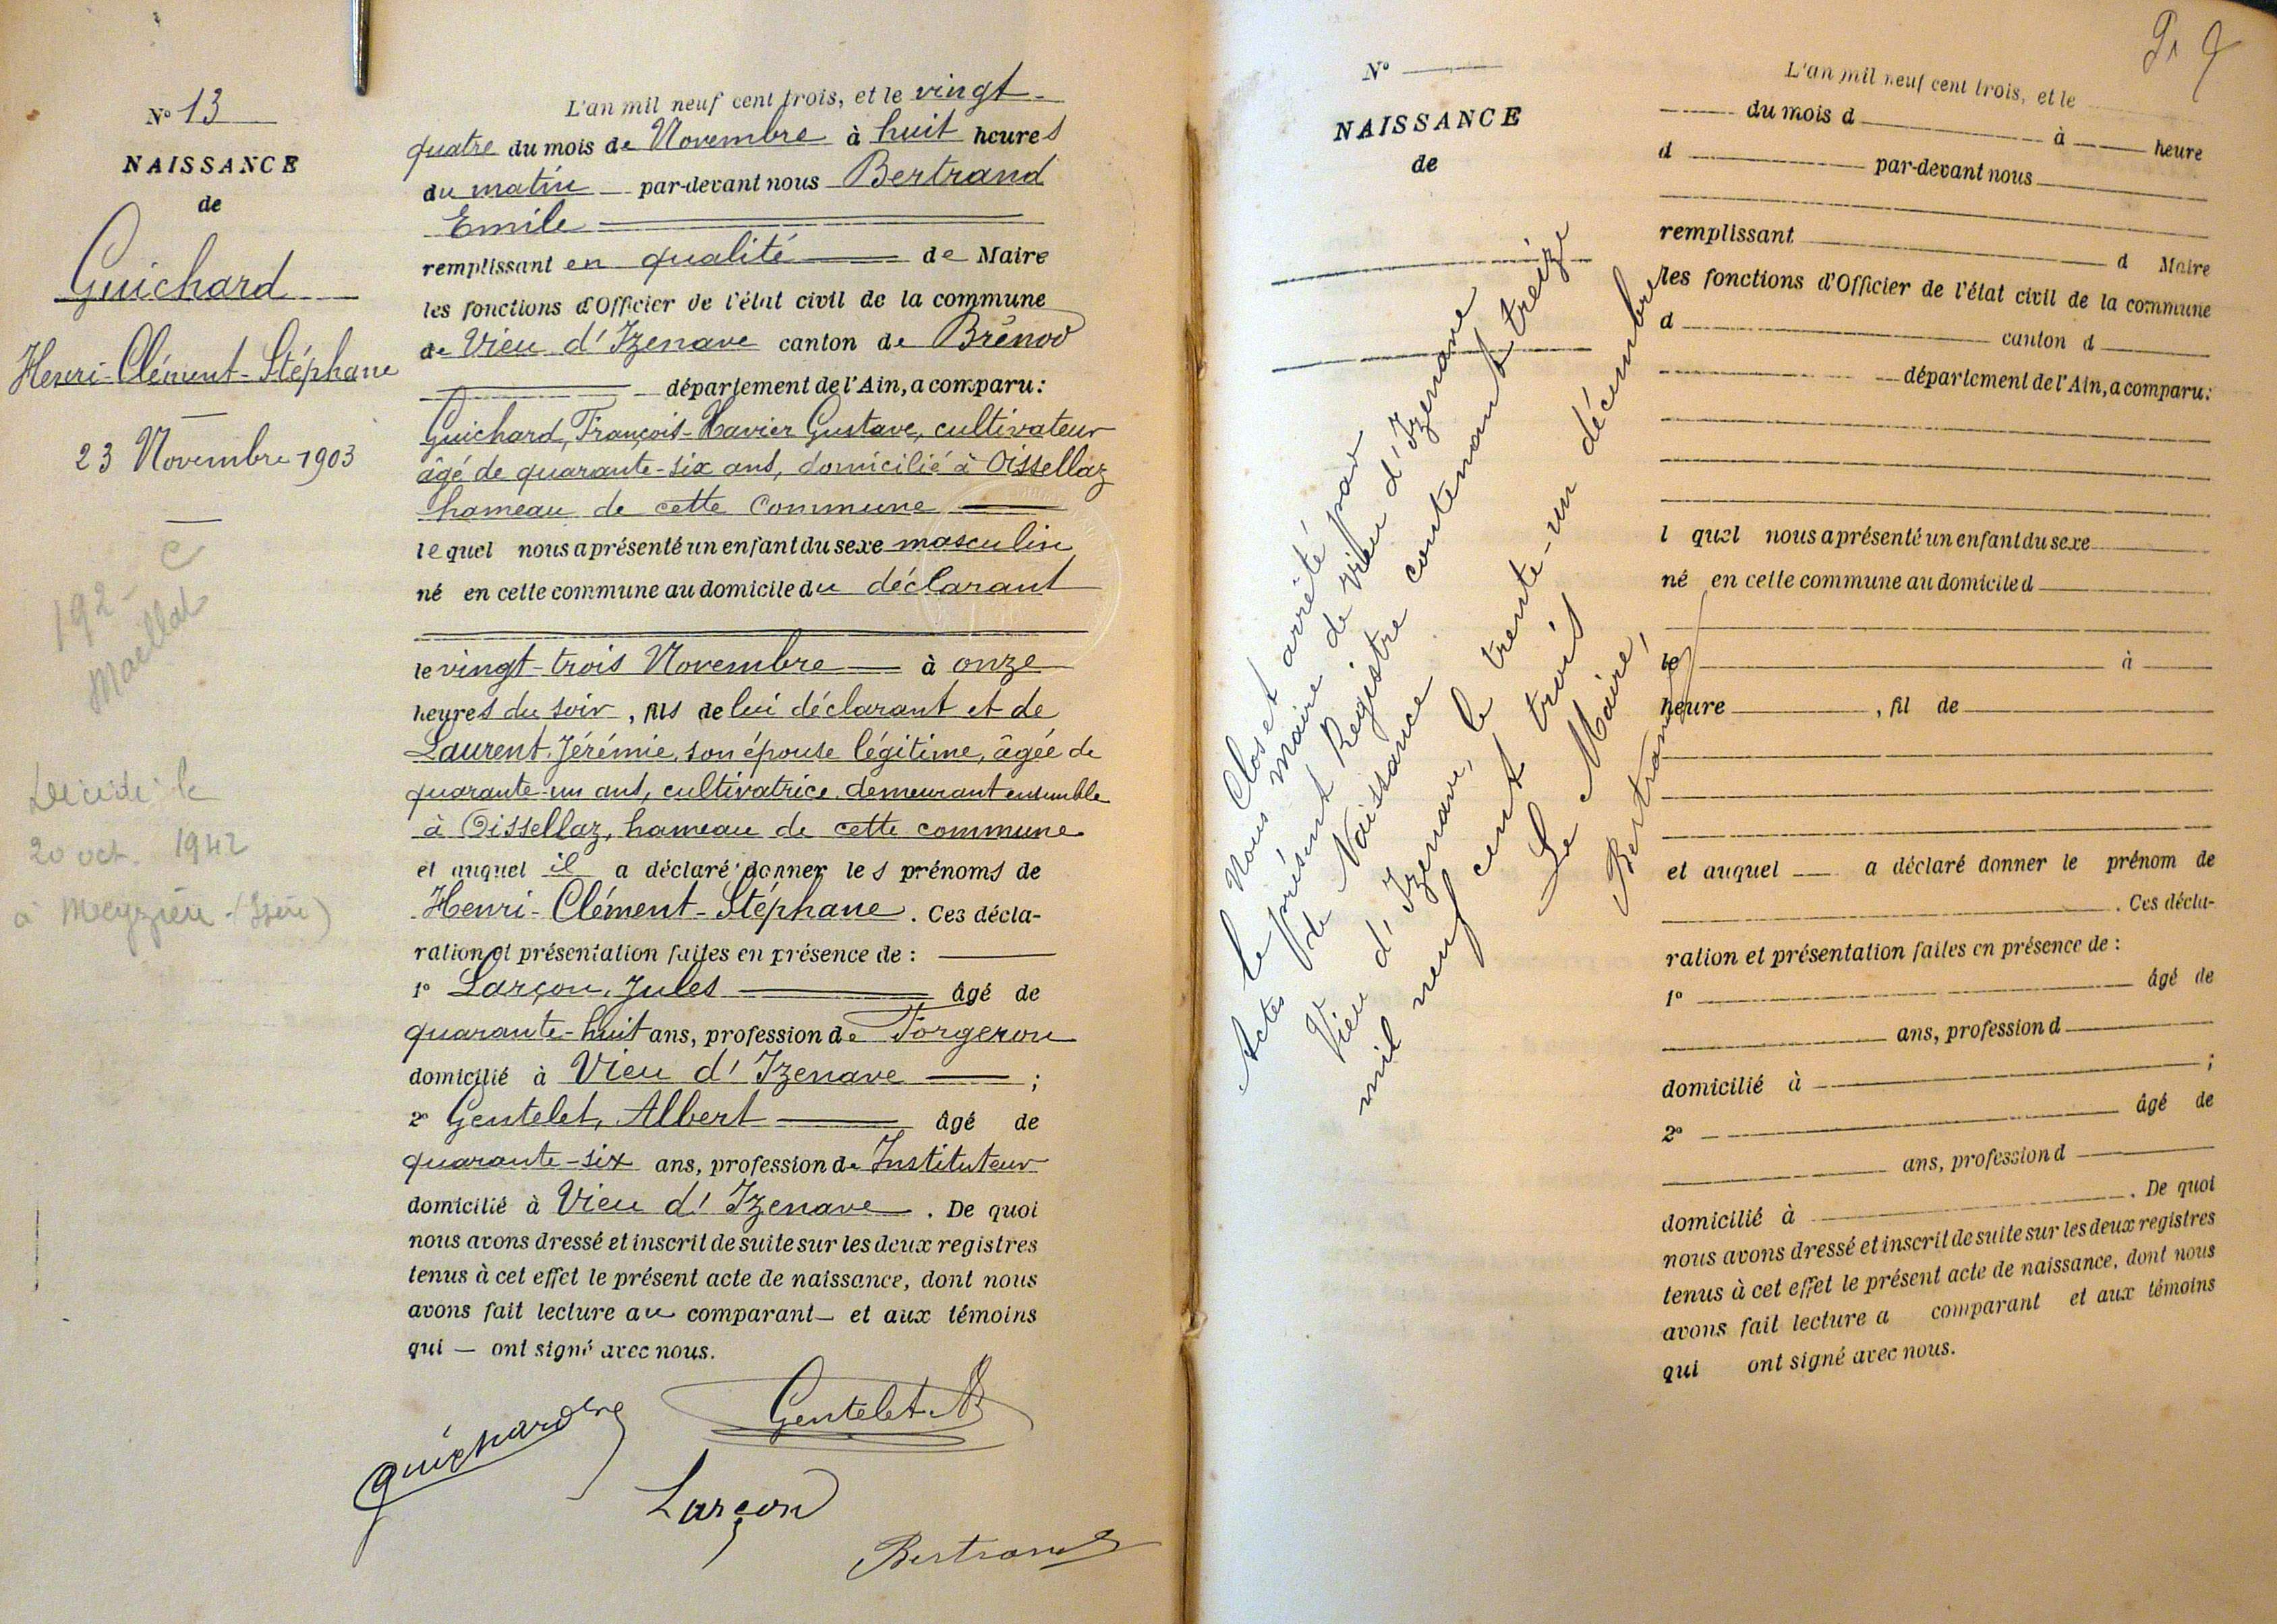 N° 13
NAISSANCE
de
Guichard
Henri-Clément-Stéphane
23 Novembre 1903
192
Maillat
Décédé le
20 oct. 1942
à Meyzieu (Isère)
L'an mil neuf cent trois, et le vingt-
quatre du mois de Novembre à huit heures
du matin par-devant nous Bertrand
Emile
remplissant en qualité de Maire
les fonctions d'Officier de l'état civil de la commune
de Vieu d'Izenave canton de Brénod
département de l'Ain, a comparu:
Guichard, François-Xavier Gustave, cultivateur
âgé de quarante-six ans, domicilié à Oissellaz
hameau de cette commune
lequel nous a présenté un enfant du sexe masculin
né en cette commune au domicile du déclarant
le vingt-trois Novembre à onze
heures du soir, fils de lui déclarant et de
Laurent, Jérémie, son épouse légitime, âgée de
quarante-un ans, cultivatrice, demeurant ensemble
à Oissellaz, hameau de cette commune
et auquel il a déclaré donner les prénoms de
Henri-Clément-Stéphane. Ces décla-
ration et présentation faites en présence de :
1° Larçon, Jules âgé de
quarante-huit ans, profession de Forgeron
domicilié à Vieu d'Izenave ;
2° Gentelet, Albert âgé de
quarante-six ans, profession de Instituteur
domicilié à Vieu d'Izenave. De quoi
nous avons dressé et inscrit de suite sur les deux registres
tenus à cet effet le présent acte de naissance, dont nous
avons fait lecture au comparant et aux témoins
qui ont signé avec nous.
Guichard
Gentelet A
Larçon
Bertrand
N°
NAISSANCE
de
Clos et arrêté par
Nous Maire de Vieu d'Izenave
le présent Registre contenant treize
Actes de Naissance
Vieu d'Izenave, le trente-un décembre
mil neuf cent trois
Le Maire,
Bertrand
L'an mil neuf cent trois, et le
du mois d à heure
d par-devant nous
remplissant d Maire
les fonctions d'Officier de l'état civil de la commune
d canton d
département de l'Ain, a comparu:
l quel nous a présenté un enfant du sexe
né en cette commune au domicile d
le à
heure , fil de
et auquel a déclaré donner le prénom de
. Ces décla-
ration et présentation faites en présence de :
1° âgé de
ans, profession d
domicilié à ;
2° âgé de
ans, profession d
domicilié à . De quoi
nous avons dressé et inscrit de suite sur les deux registres
tenus à cet effet le présent acte de naissance, dont nous
avons fait lecture a comparant et aux témoins
qui ont signé avec nous.